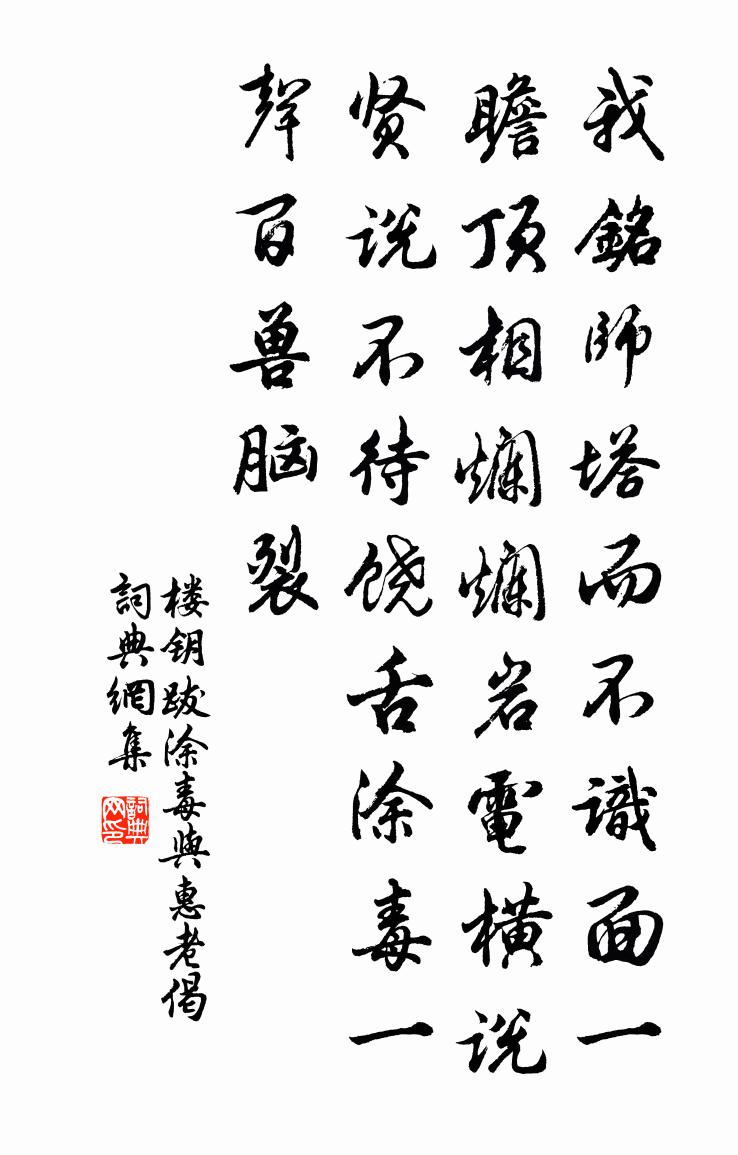 我銘師塔而不識面一
瞻顶相爛爛岩電横说
贤说不待饶舌涂毒一
聲百兽脑裂
楼钥跋涂毒與惠老偈
詞典網集
詞典网印